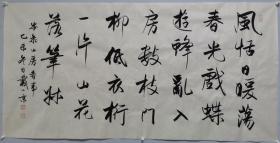 風恬日暖蕩
春光戲蝶
遊蜂亂入
房數枝門
柳低衣桁
一片山花
落筆牀
岑參山房春事